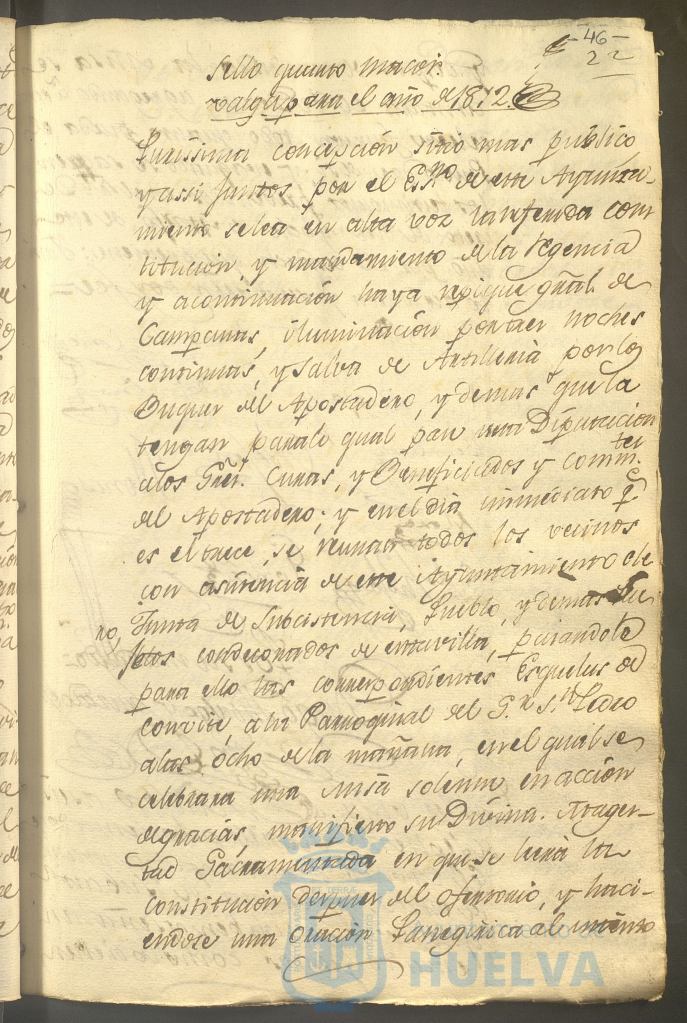 -46-
22
Sello quarto mayor.
valga para el año de 1812.
Purissima concepcion sitio mas publico
y assi juntos por el Esno de este Ayunta-
miento se lea en alta voz la referida cons
titucion y mandamiento de la Regencia
y acontinuacion haya repique gñal de
Campanas, iluminacion por tres noches
continuas, y salva de Artilleria por los
Buques del Apostadero, y demas que la
tengan paralo qual pase una Diputacion
alos Sres. Curas, y Beneficiados y Comte
del Apostadero; y en el dia inmediato qe
es el trece, se reunan todos los vecinos
con asistencia de este Ayuntamiento ple
no, Junta de Subsistencia, Pueblo, y demas su
jetos condecorados de esta villa, pasandole
para ello las correspondientes Esquelas de
convite, a la Parroquial del Sr. Sn. Pedro
alas ocho de la mañana, en el qual se
celebrara una Misa solemne en accion
de gracias, manifiesto su Divina Mages-
tad Sacramentada en que se leera la
constitucion despues del ofertorio, y haci-
endose una Oracion Panegirica al intento
HUELVA